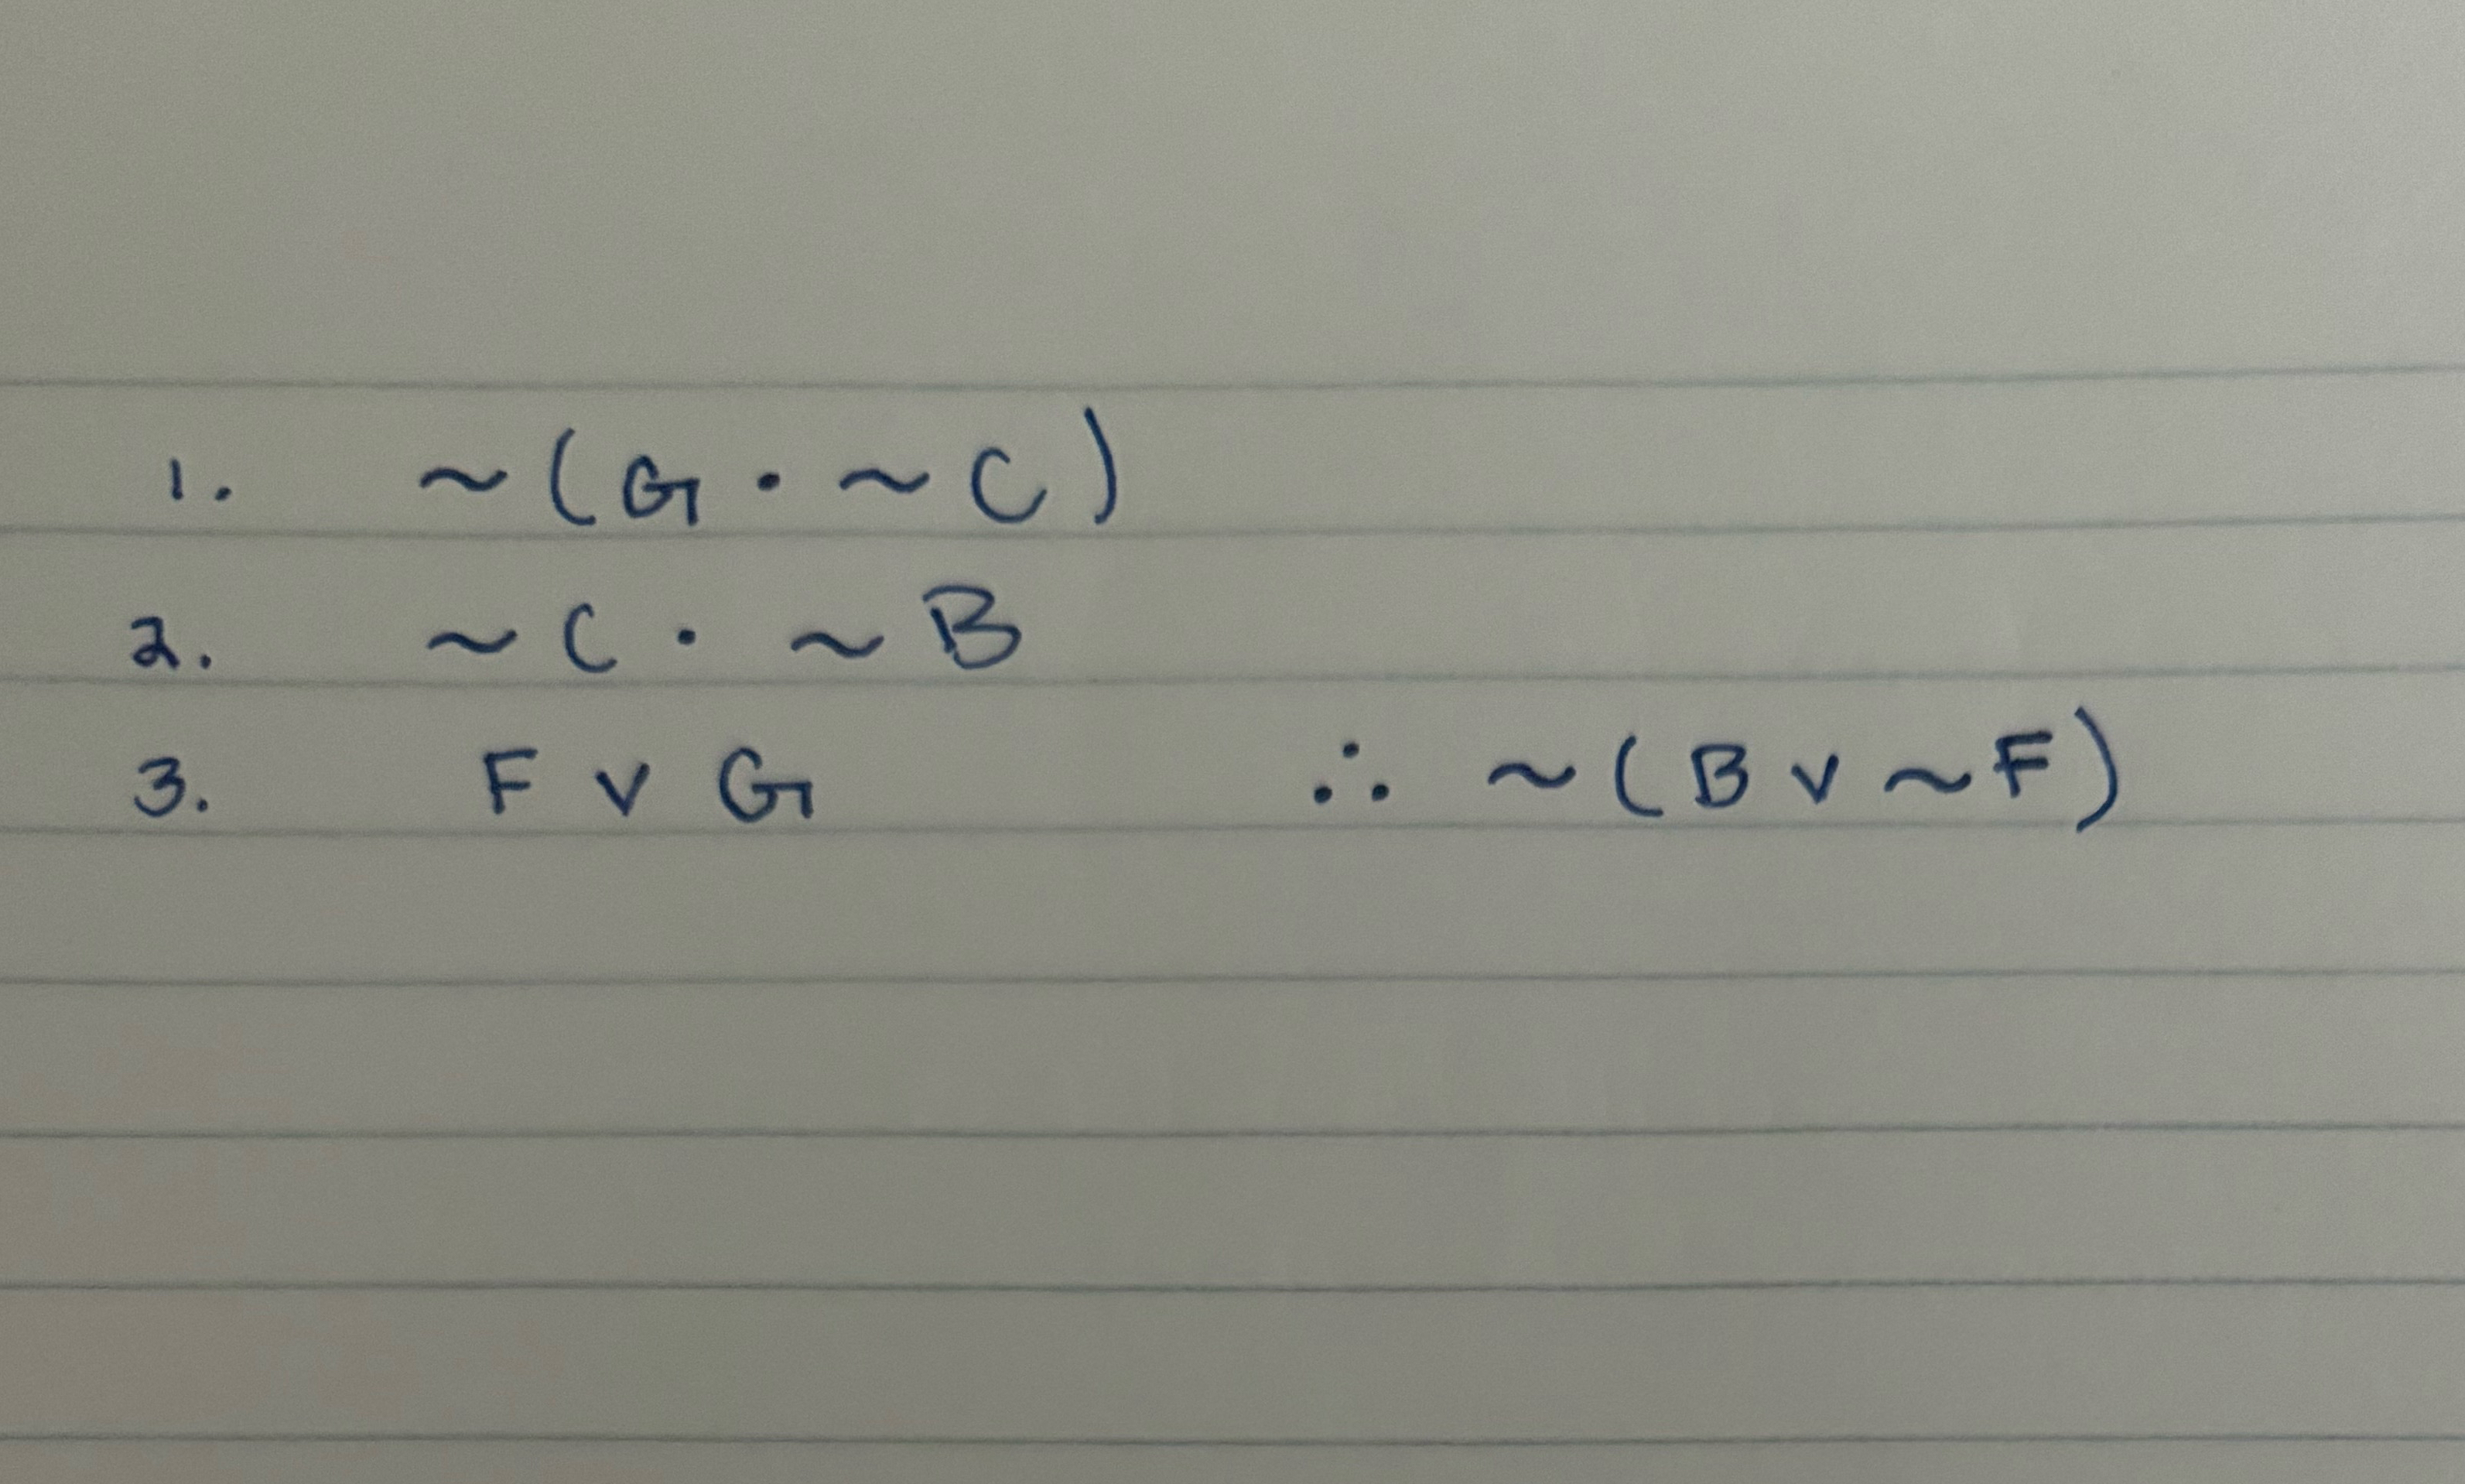 1. ~(G · ~C)
2. ~C · ~B
3. F v G ∴ ~(B v ~F)